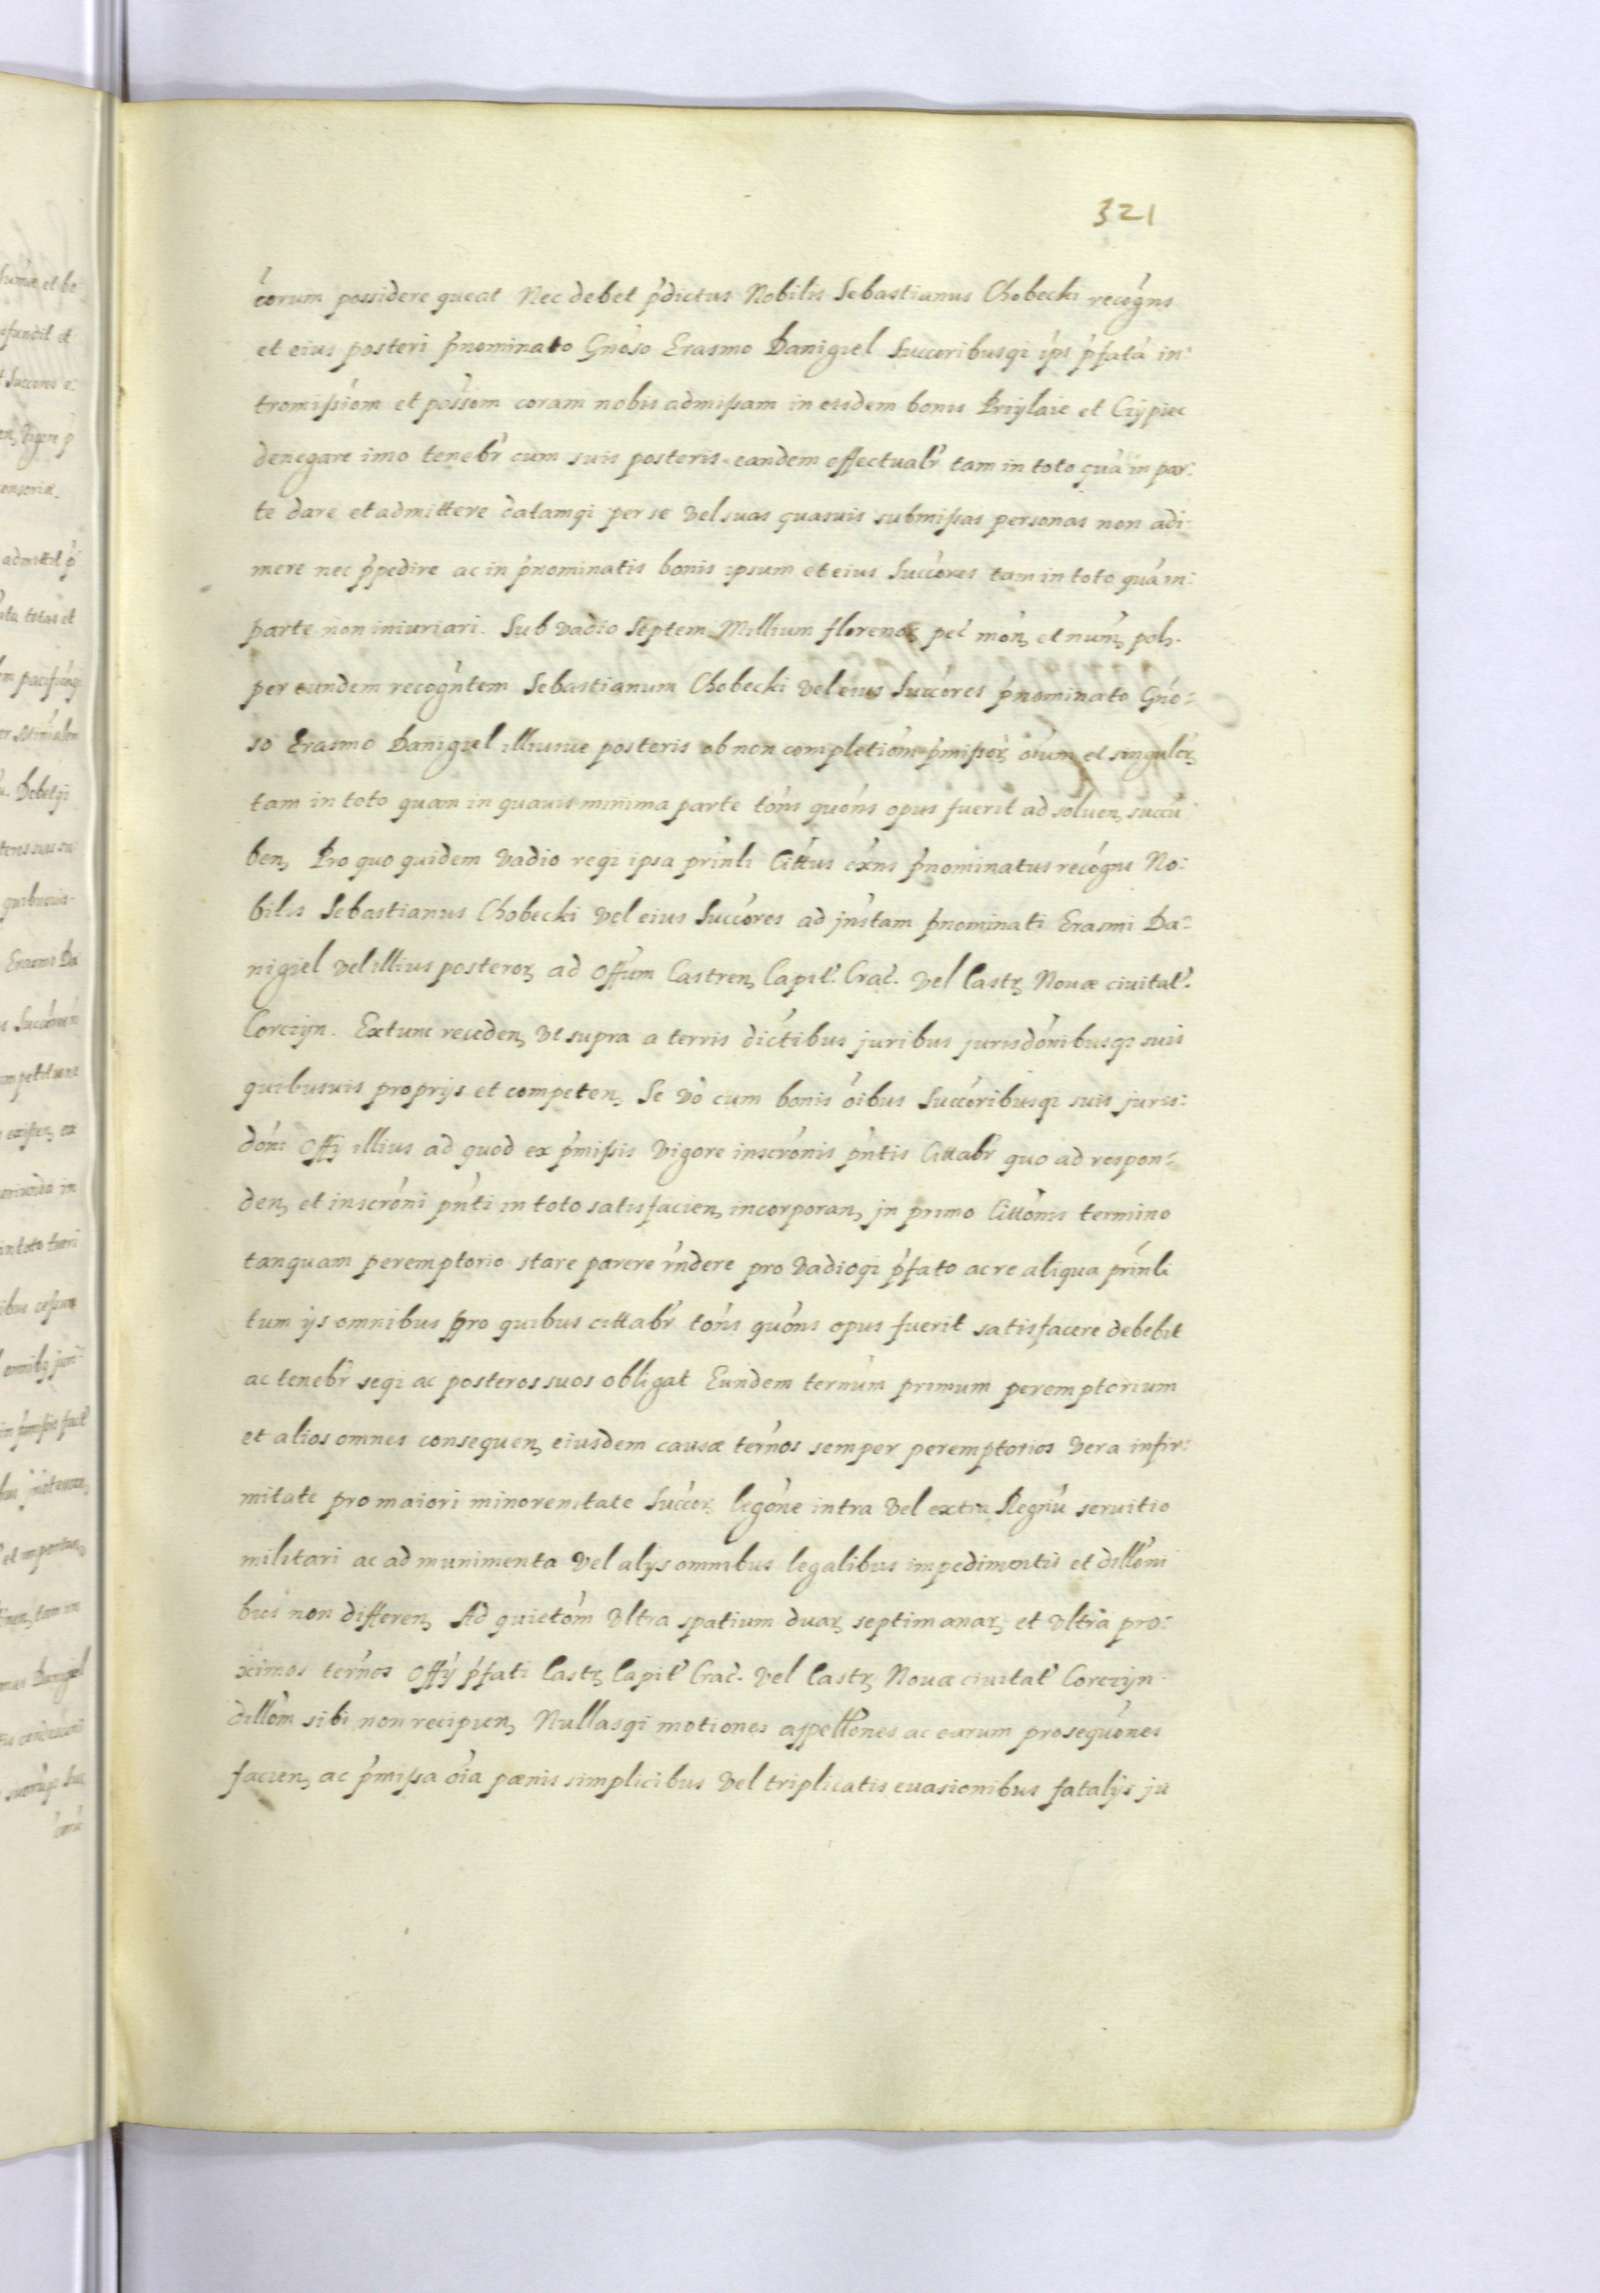 321
eorum possidere queat Nec debet p̃dictus Nobilis Sebastianus Chobecki recogns
et eius posteri p̃nominato Gnoso Erasmo Banigiel Succoribusqꝫ ips p̃fatã in-
tromißiom et poss̃om coram nobis admißam in eisdem bonis Przylaie et Czypiec
denegare imo tenebr cum suis posteris eandem effectualr tam in toto quã in par-
te dare et admittere datamqꝫ per se vel suas quasuis submißas personas non adi-
mere nec p̃pedire ac in p̃nominatis bonis ipsum et eius Succores tam in toto quã in
parte non iniuriari. Sub vadio Septem Millium florenoꝝ pec mon, et num, pol,.
per eundem recogntem Sebastianum Chobecki vel eius Succores p̃nominato Gno-
so Erasmo Banigiel illiusue posteris ob non completiom p̃mißoꝝ oium et singuloꝝ
tam in toto quam in quauis minima parte tons quons opus fuerit ad soluen, succũ
ben, Pro quo quidem vadio reqꝫ ipsa prinli Cittus exns p̃nominatus recogns No-
bilis Sebastianus Chobecki vel eius Succores ad jnstam p̃nominati Erasmi Ba-
nigiel vel illius posteroꝝ ad Offum Castren, Capit. Crac. vel Castꝝ Nouæ ciuitat.
Corczyn. Extunc receden, vt supra a terris dictibus juribus jurisdonibusqꝫ suis
quibusuis proprijs et competen, Se vo cum bonis oibus Succoribusqꝫ suis juris-
doni Offij illius ad quod ex p̃mißis vigore inscronis p̃ntis Cittabr quo ad respon-
den, et inscroni p̃nti in toto satisfacien, incorporan, jn primo Cittonis termino
tanquam peremptorio stare parere rndere pro vadioqꝫ p̃fato ac re aliqua prinli
tum ijs omnibus pro quibus cittabr tons quons opus fuerit satisfacere debebit
ac tenebr seqꝫ ac posteros suos obligat Eundem ternum primum peremptorium
et alios omnes consequen, eiusdem causæ ternos semper peremptorios vera infir-
mitate pro maiori minorenitate Succor, legone intra vel extra Regnũ seruitio
militari ac ad munimenta vel alijs omnibus legalibus impedimentis et dilloni
bus non differen, Ad quictom vltra spatium duaꝝ septimanaꝝ et vltra pro-
ximos ternos Offij p̃fati Castꝝ Capit Crac. vel Castꝝ Nouæ ciuitat Corczyn.
dillom sibi non recipien, Nullasqꝫ motiones appellones ac earum prosequones
facien, ac p̃mißa oia pænis simplicibus vel triplicatis euasionibus fatalijs ju